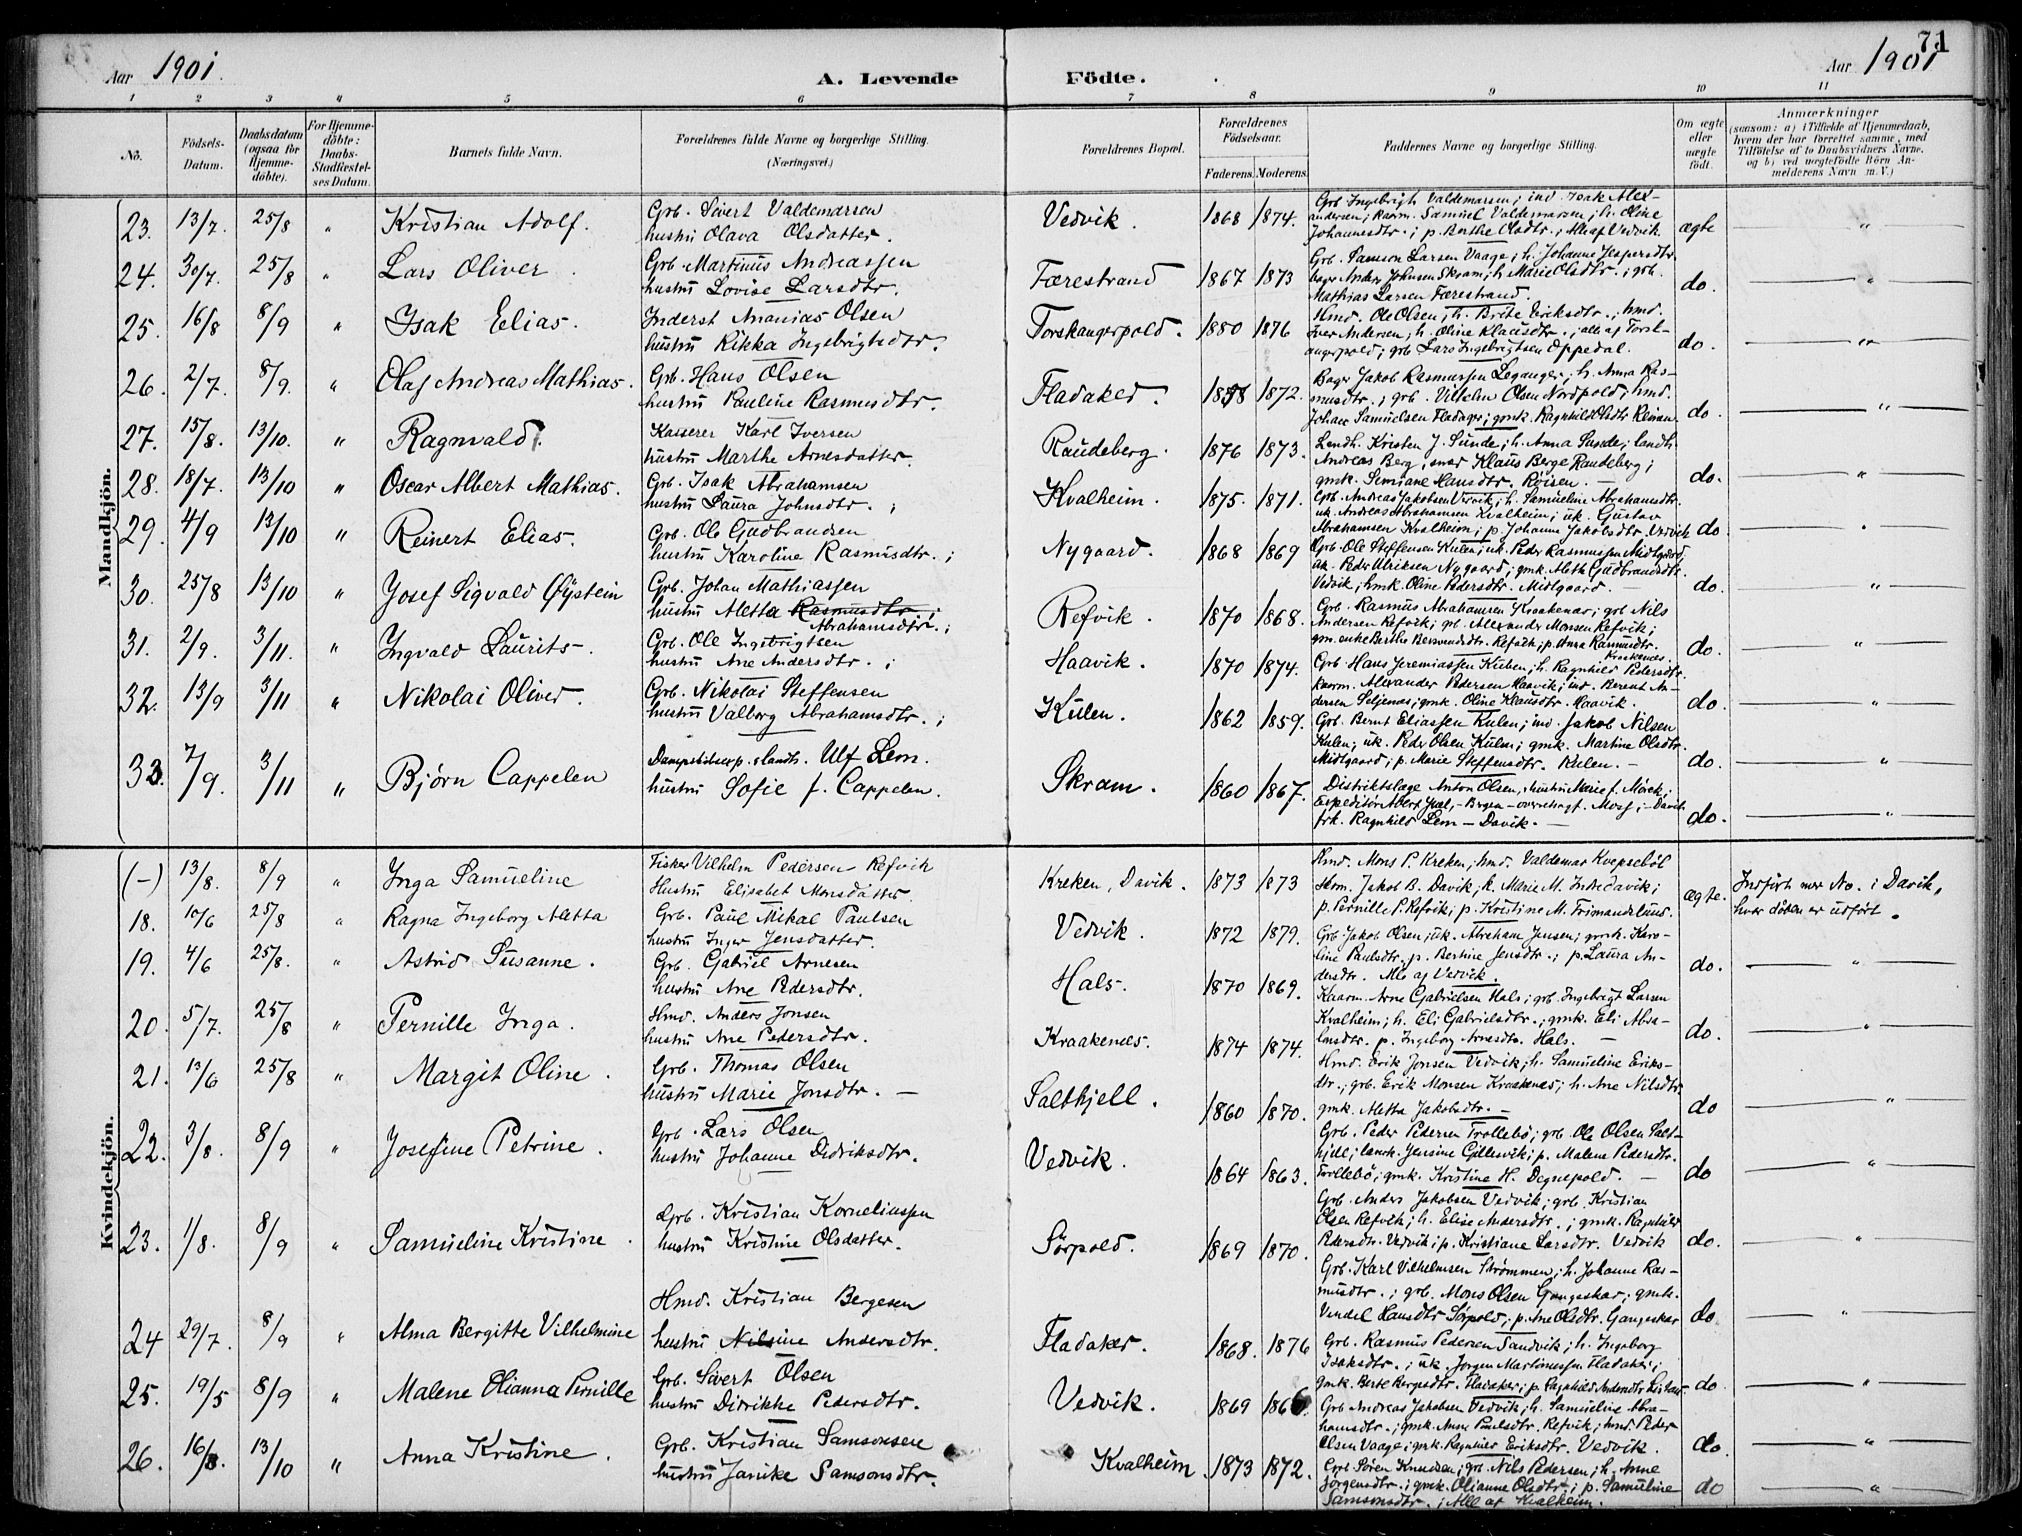 Aar 1901.
A. Levende
Födte.
Aar 1901
71
1 2 3 4 5 6 7 8 9 10 11
No.
Födsels-Datum.
Daabsdatum (ogsaa for Hjemmedöbte).
For Hjemmedöbte: Daabs-Stadfæstelses Datum.
Barnets fulde Navn.
Forældrenes fulde Navne og borgerlige Stilling. (Næringsvei.)
Forældrenes Bopæl.
Forældrenes Födselsaar.
Faderens. Moderens.
Faddernes Navne og borgerlige Stilling.
Om ægte eller uægte födt.
Anmærkninger
(saasom: a) i Tilfælde af Hjemmedaab, hvem der har forrettet samme, med Tilföielse af to Daabsvidners Navne, og b) ved uægtefödte Börn Anmelderens Navn m. V.)
Mandkjön.
23. 13/7. 25/8 " Kristian Adolf.
Grb. Sivert Valdemarsen
hustru Olava Olsdatter.
Vedvik. 1868 1874.
Grb Ingebrigt Valdemarsen; ind Isak Alex-
andersen; kaarm. Samuel Valdemarsen; h. Oline
Johannesdtr.; p. Berthe Olsdtr.; Alle af Vedvik.
ægte "
24. 30/7. 25/8 " Lars Oliver.
Grb. Martinus Andreassen
hustru Lovise Larsdtr.
Færestrand 1867 1873
Grb. Samson Larsen Vaage; h. Johanne Jespersdtr
bager Anders Johnsen Skram; h. Marie Olsdtr.; grb.
Mathias Larsen Færestrand.
do. "
25. 16/8 8/9 " Isak Elias.
Inderst Ananias Olsen
hustru Rikka Ingebrigtsdtr.
Torskangerpold. 1880 1876
Hmd. Ole Olsen; h. Brite Eriksdtr.; hmd.
Iver Andersen; h. Oline Klausdtr.; alle af Torsk-
angerpold; grb Lars Ingebrigtsen Oppedal.
do. "
26. 2/7. 8/9. " Olaf Andreas Mathias.
Grb. Hans Olsen
hustru Pauline Rasmusdtr.
Fladaker. 1858 1872.
Bager Jakob Rasmussen Leganger; h. Anna Ras-
musdtr.; grb. Vilhelm Olsen Nordpold; hmd.
Johan Samuelsen Fladager; gmk. Ragnhild Olsdtr Reiman
do "
27. 15/8. 13/10. " Ragnvald.
Kasserer Karl Iversen
hustru Marthe Arnesdatter.
Raudeberg. 1876 1873.
Landh. Kristen J. Sunde; h. Anna Sunde; landh.
Andreas Berg; Klaus Berge Raudeberg;
gmk. Simiane Hansdtr. Röisen.
do. "
28. 18/7. 13/10 " Oscar Albert Mathias.
Grb. Isak Abrahamsen
hustru Laura Johnsdtr.;
Kvalheim. 1875. 1871.
Grb. Andreas Jakobsen Vedvik; h. Samueline Abrahamsdtr.
uk. Andreas Abrahamsen Kvalheim; uk. Gustav
Abrahamsen Kvalheim; p. Johanna Jakobsdtr Vedvik
do. "
29. 4/9 13/10 " Reinert Elias.
Grb. Ole Gudbrandsen
hustru Karoline Rasmusdtr.;
Nygaard. 1868 1869
Grb. Ole Steffensen Kulen; uk. Peder Rasmussen Midtgaard;
uk. Peder Ulriksen Nygaard; gmk. Aleth Gudbrandsdtr.
Vedvik; hmk. Oline Pedersdtr. Midtgaard.
do. "
30. 25/8 13/10 " Josef Sigvald Øystein
Grb. Johan Mathiassen
hustru Aletta Rasmusdtr.;
Abrahamsdtr.;
Refvik. 1870 1868.
Grb. Rasmus Abrahamsen Kraakenæs; grb Nils
Andersen Refvik; grb. Alexander Monsen Refvik;
gm. enke Berthe Bermundsdtr. Refvik; p. Anna Rasmusdtr.
Kraakenes.
do. "
31. 2/9. 3/11. " Ingvald Laurits.
Grb. Ole Ingebrigtsen
hustru Ane Andersdtr.;
Haavik. 1870 1874.
Grb. Hans Jeremiassen Kulen; h. Ragnhild Pedersdtr.
kaarm. Alexander Pedersen Haavik; ind. Berent An-
dersen Seljenæs; gmk. Oline Klausdtr. Haavik.
do. "
32. 13/9 3/11 " Nikolai Oliver.
Grb. Nikolai Steffensen
hustru Valborg Abrahamsdtr.;
Kulen. 1862 1859.
Grb. Bernt Eliassen Kulen; ind. Jakob Nilsen
Kulen; uk. Peder Olsen Kulen; gmk. Martine Olsdtr.
Midtgaard; p. Marie Steffensdtr. Kulen.
do. "
33. 7/9. 3/11 " Bjørn Cappelen
Dampskibsexp. & landh. Ulf Lem.
hustru Sofie f. Cappelen.
Skram. 1860 1867.
Distriktslæge Anton Olsen, hustru Marie f. Mörch;
Expeditör Albert Juel, - Bergen - Davik
frk. Ragnhild Lem - Davik.
do. "
Kvindekjön.
(-) 13/8. 8/9 " Inga Samueline
Fisker Vilhelm Pedersen Refvik
Hustru Elisabet Monsdatter.
Kreken, Davik. 1873 1873
Hmd. Mons P. Kreken; hmd. Valdemar Kvepsebøl
Hkm. Jakob B. Davik; k. Marie M. Indredavik;
p. Pernille P. Refvik; p. Kristine M. Frimandslund.
ægte.
Indført mer No. i Davik,
hvor döben er udført.
18. 10/6 25/8 " Ragna Ingeborg Aletta
Grb. Paul Mikal Paulsen
hustru Inger Jensdatter.
Vedvik. 1872 1879.
Grb Jakob Olsen; uk. Abraham Jensen; gmk. Karo-
line Paulsdtr. p. Bertine Jensdtr.; p. Laura An-
dersdtr. Alle af Vedvik.
do. "
19. 4/6 25/8. " Astrid Susanne.
Grb. Gabriel Arnesen
hustru Ane Pedersdtr.
Hals. 1870 1869.
Kaarm. Arne Gabrielsen Hals; grb. Ingebrigt Larsen
Kvalheim; h. Eli Gabrielsdtr.; gmk. Eli Abra-
hmsdtr. p. Ingeborg Arnesdtr. Hals.
do. "
20. 5/7. 25/8 " Pernille Inga.
Hmd. Anders Jonsen
hustru Ane Pedersdtr.
Kraakenes. 1874 1874.
Hmd. Erik Jonsen Vedvik; h. Samueline Eriks-
dtr.; grb. Erik Monsen Kraakenæs; h. Ane Nilsdtr.
gmk. Aletta Jakobsdtr.
do "
21. 13/6 25/8 " Margit Oline.
Grb. Thomas Olsen
hustru Marie Jonsdtr.
Saltkjell. 1860 1870.
Grb. Peder Pedersen Trollebö; grb. Ole Olsen Salt-
kjell; landh. Jensine Gillesvik; p. Malene Pedersdtr.
Trollebö; gmk. Kristine H. Degnepold.
do "
22. 3/8. 8/9 " Josefine Petrine.
Grb. Lars Olsen
hustru Johanne Didriksdtr.
Vedvik. 1864 1863.
Grb. Anders Jakobsen Vedvik; grb. Kristian
Olsen Refvik; h. Elise Andersdtr.; gmk. Ragnhild
Pedersdtr. Vedvik; p. Kristiane Larsdtr. Vedvik
do. "
23. 1/8. 8/9 " Samueline Kristine.
Grb. Kristian Korneliussen
hustru Kristine Olsdatter.
Sörpold. 1869 1870.
Grb. Karl Vilhelmsen Strømmen; h. Johanne Ras-
musdtr.; grb. Mons Olsen Gangeskar; gmk.
Vendel Hansdtr Sörpold; p. Ane Olsdtr. Gangeskar
do "
24 29/7. 8/9 " Alma Bergitte Vilhelmine
Hmd. Kristian Bergesen
hustru Nilsine Andersdtr.
Fladaker. 1868. 1876
Grb. Rasmus Pedersen Sandvik; h. Ingeborg
Isaksdtr.; uk. Jørgen Martinussen Fladaker;
gmk. Berte Bergesdtr. Fladaker; p. Ragnhild Andersdtr
do. "
25. 19/5 8/9 " Malene Olianna Pernille
Grb. Sivert Olsen
hustru Didrikke Pedersdtr.
Vedvik. 1869 1866.
Grb Andreas Jakobsen Vedvik; h. Samueline Abra-
hamsdtr.; gmk. Anne Paulsdtr. Refvik; hmd. Peder
Olsen Vaage; gmk. Ragnhild Eriksdtr. Vedvik.
do. "
26. 16/8. 13/10 " Anna Kristine.
Grb. Kristian Samsonsen
hustru Janike Samsonsdtr.
Kvalheim 1873 1872.
Grb Sören Knudsen; grb. Nils Pedersen; h. Anne
Jørgensdtr.; gmk. Olianne Olsdtr.; p. Samueline
Samsonsdtr.; Alle af Kvalheim.
do "